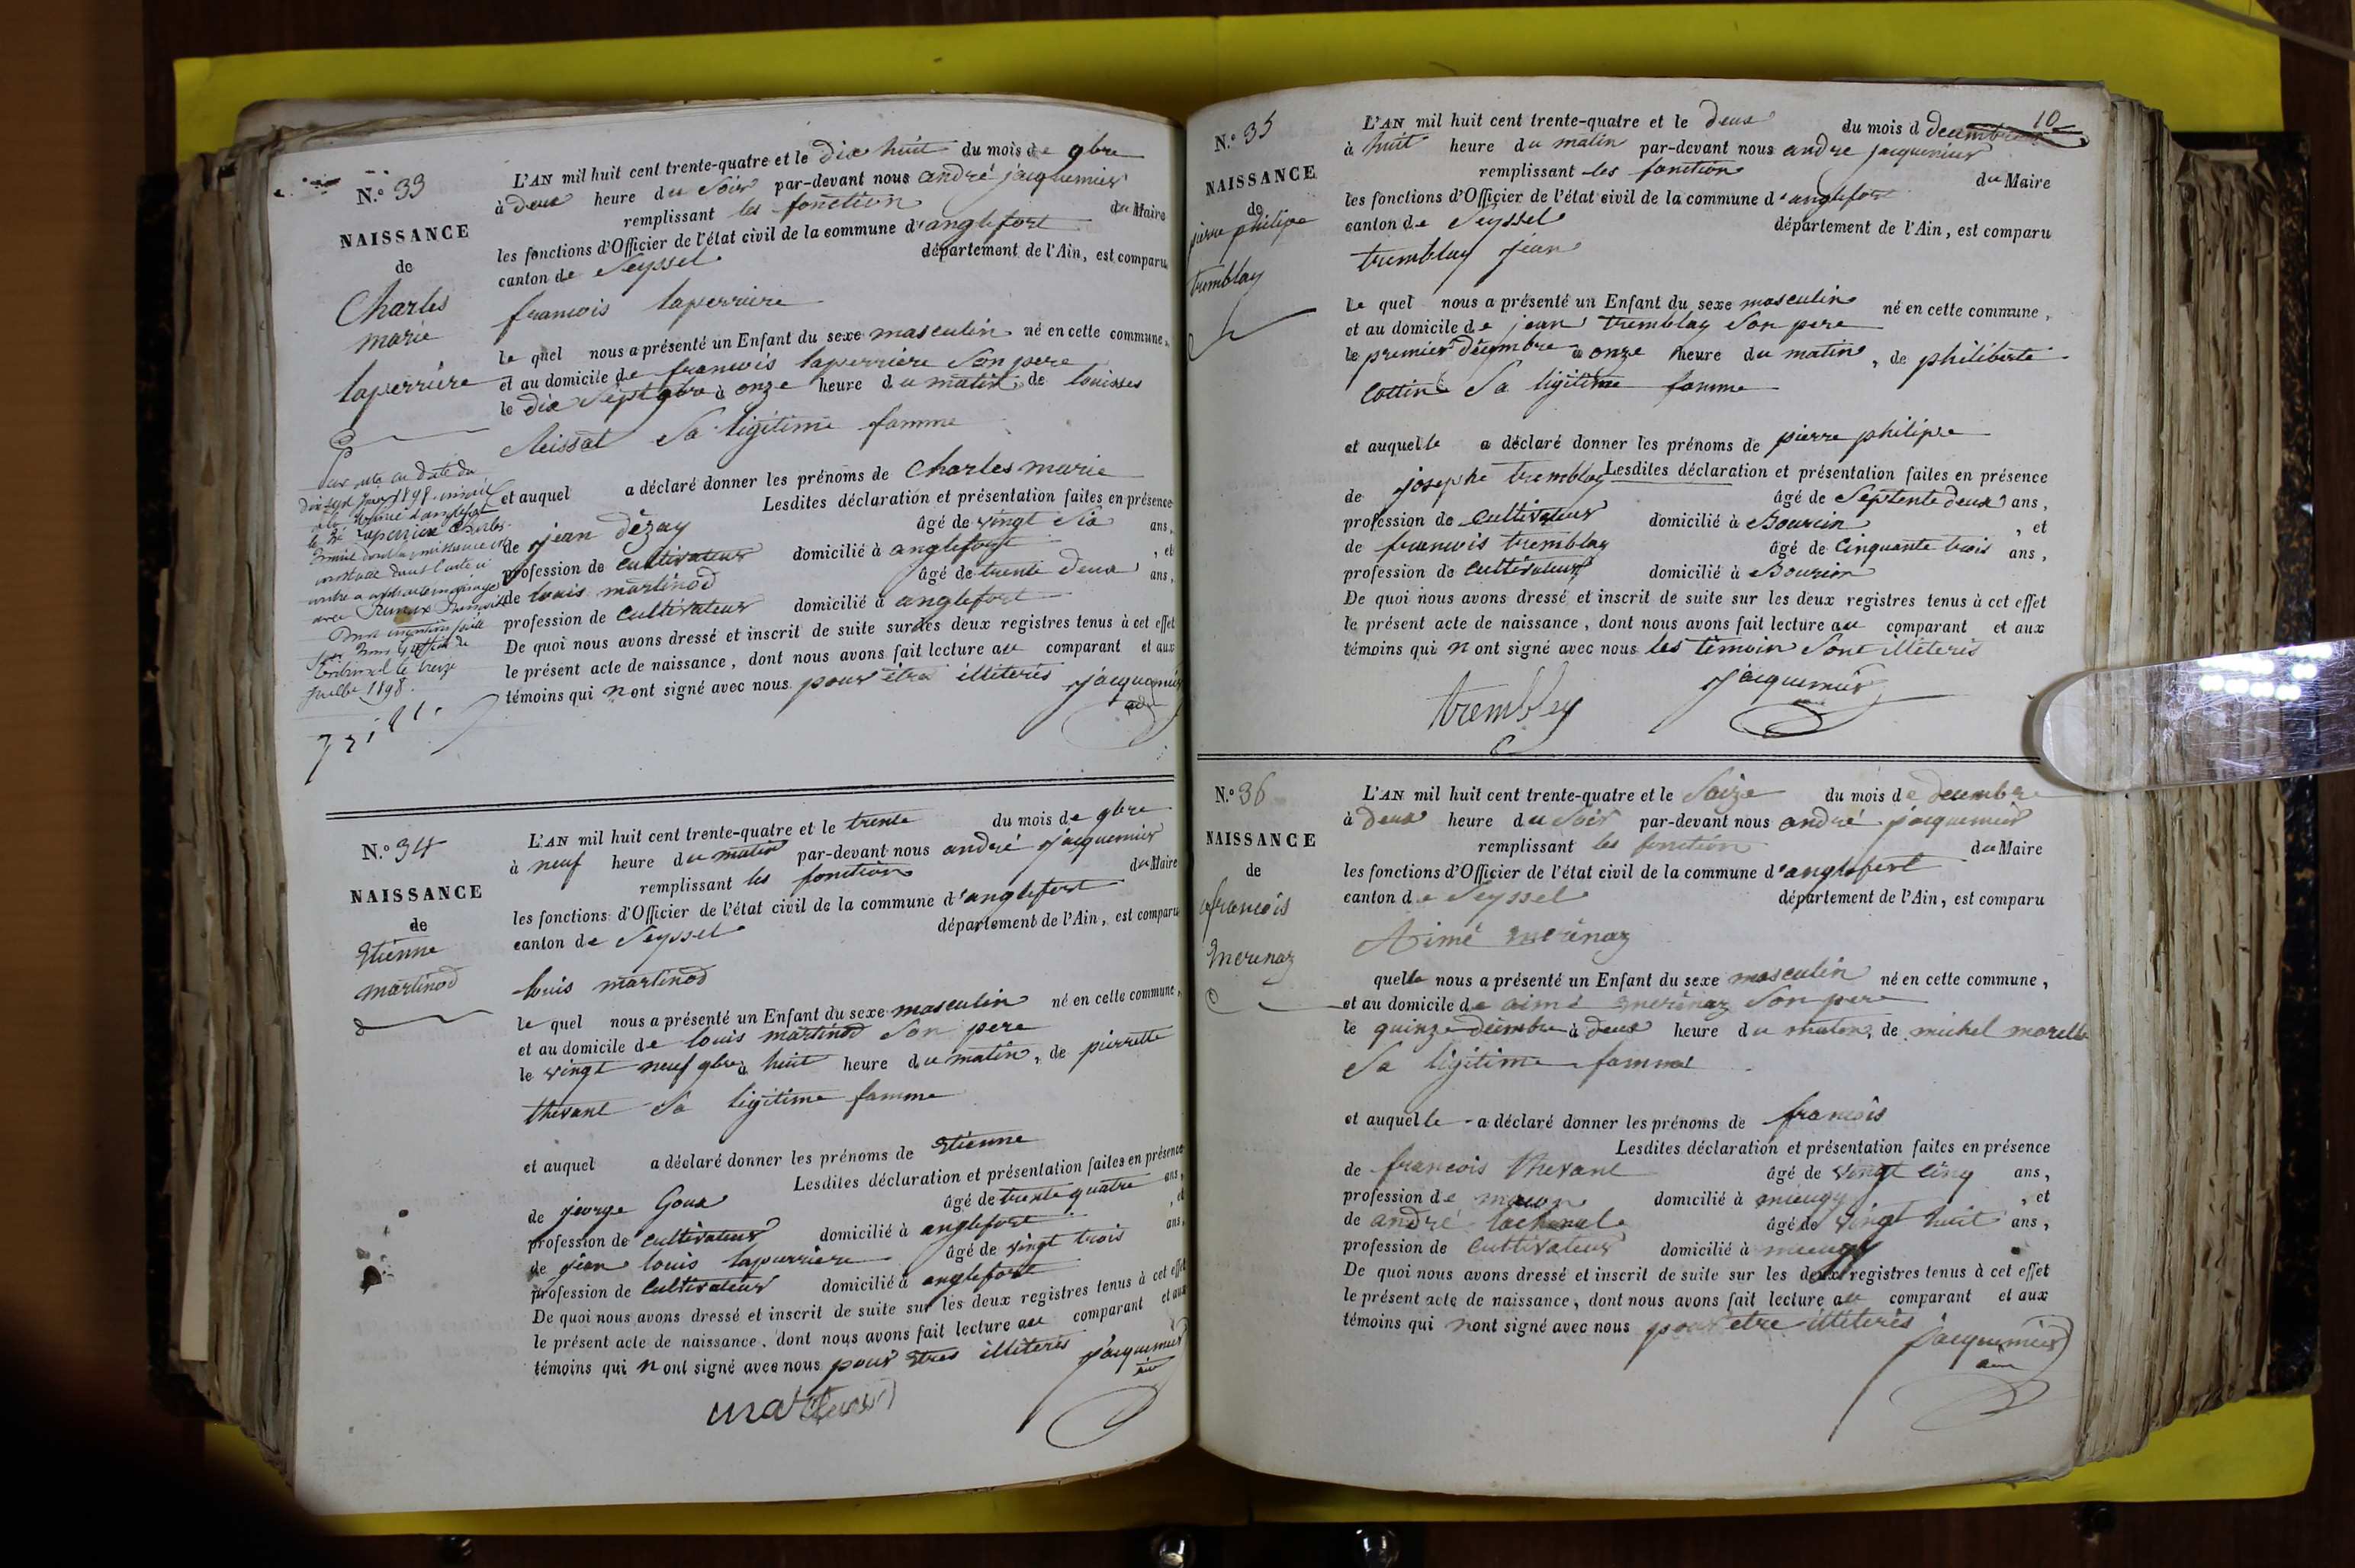 N.° 33
NAISSANCE
de
Charles
marie
laperrière
L'AN mil huit cent trente-quatre et le dix huit du mois de 9bre
à deux heure du Soir par-devant nous andré jacquemier
remplissant les fonction du Maire
les fonctions d'Officier de l'état civil de la commune d'anglefort
canton de Seyssel département de l'Ain, est comparu
francois laperriere
le quel nous a présenté un Enfant du sexe masculin né en cette commune,
et au domicile de francois laperriere Son pere
le dix Sept 9bre à onze heure du matin, de louisses
Sa ligitime famme
et auquel a déclaré donner les prénoms de Charles marie
Lesdites déclaration et présentation faites en présence
de jean dézay âgé de vingt Six ans,
profession de cultivateur domicilié à anglefort , et
de louis martinod âgé de trente deux ans,
profession de cultivateur domicilié à anglefort
De quoi nous avons dressé et inscrit de suite sur les deux registres tenus à cet effet
le présent acte de naissance, dont nous avons fait lecture au comparant et aux
témoins qui n ont signé avec nous pour être illiterés jacquemier
Par acte en date du
dix sept 1898 inscrit
à la mairie d'anglefort
le Sr Laperrière Charles
Marie dont la naissance est
constatée dans l'acte ci
contre a contracté mariage
avec
Dont mention faite
par nous greffier du
tribunal le treize
juillet 1898.
N.° 34
NAISSANCE
de
Etienne
martinod
L'AN mil huit cent trente-quatre et le trente du mois de 9bre
à neuf heure du matin par-devant nous andré jacquemier
remplissant les fonction du Maire
les fonctions d'Officier de l'état civil de la commune d'anglefort
canton de Seyssel département de l'Ain, est comparu
louis martinod
le quel nous a présenté un Enfant du sexe masculin né en cette commune,
et au domicile de louis martinod Son pere
le vingt neuf 9bre à huit heure du matin, de pierrette
thevant Sa ligitime famme
et auquel a déclaré donner les prénoms de Etienne
Lesdites déclaration et présentation faites en présence
de jeorge Goux âgé de trente quatre ans,
profession de cultivateur domicilié à anglefort , et
de jean louis laperriere âgé de vingt trois ans,
profession de cultivateur domicilié à anglefort
De quoi nous avons dressé et inscrit de suite sur les deux registres tenus à cet effet
le présent acte de naissance, dont nous avons fait lecture au comparant et aux
témoins qui n ont signé avec nous pour etres illiterés jacquemier
martinod
10
N.° 35
NAISSANCE
de
pierre philipe
tremblay
L'AN mil huit cent trente-quatre et le deux du mois d decembre
à huit heure du matin par-devant nous andre jacquemier
remplissant les fonction du Maire
les fonctions d'Officier de l'état civil de la commune d'anglefort
canton de Seyssel département de l'Ain, est comparu
tremblay jean
le quel nous a présenté un Enfant du sexe masculin né en cette commune,
et au domicile de jean tremblay Son pere
le premier décembre à onze heure du matin, de philiberte
Cottin Sa ligitime famme
et auquel le a déclaré donner les prénoms de pierre philipe
Lesdites déclaration et présentation faites en présence
de josephe tremblay âgé de Septente deux ans,
profession de Cultivateur domicilié à Bourcin , et
de francois tremblay âgé de Cinquante trois ans,
profession de Cultivateur domicilié à Bourcin
De quoi nous avons dressé et inscrit de suite sur les deux registres tenus à cet effet
le présent acte de naissance, dont nous avons fait lecture au comparant et aux
témoins qui n ont signé avec nous les témoin Sont illiterés
trembley jacquemier
N.° 36
NAISSANCE
de
francois
merinaz
L'AN mil huit cent trente-quatre et le Saize du mois de decembre
à deux heure du Soir par-devant nous andré jacquemier
remplissant les fonction du Maire
les fonctions d'Officier de l'état civil de la commune d'anglefort
canton de Seyssel département de l'Ain, est comparu
Aimé merinaz
quelle nous a présenté un Enfant du sexe masculin né en cette commune,
et au domicile de aimé merinaz Son pere
le quinze décembre à deux heure du matin, de michel morelle
Sa ligitime famme
et auquel le a déclaré donner les prénoms de francois
Lesdites déclaration et présentation faites en présence
de francois thevant âgé de vingt cinq ans,
profession de macon domicilié à mieugy , et
de andré lachenal âgé de vingt huit ans,
profession de cultivateur domicilié à mieugy
De quoi nous avons dressé et inscrit de suite sur les deux registres tenus à cet effet
le présent acte de naissance, dont nous avons fait lecture au comparant et aux
témoins qui n ont signé avec nous pour etre illiterés
jacquemier